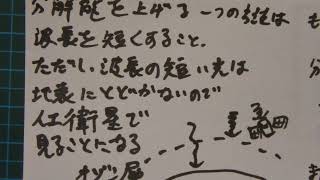 分解能を上げる一つの方法は
波長を短くすること.
ただし波長の短い光は
地表にとどかないので
人工衛星で
見ることになる
オゾン層
も